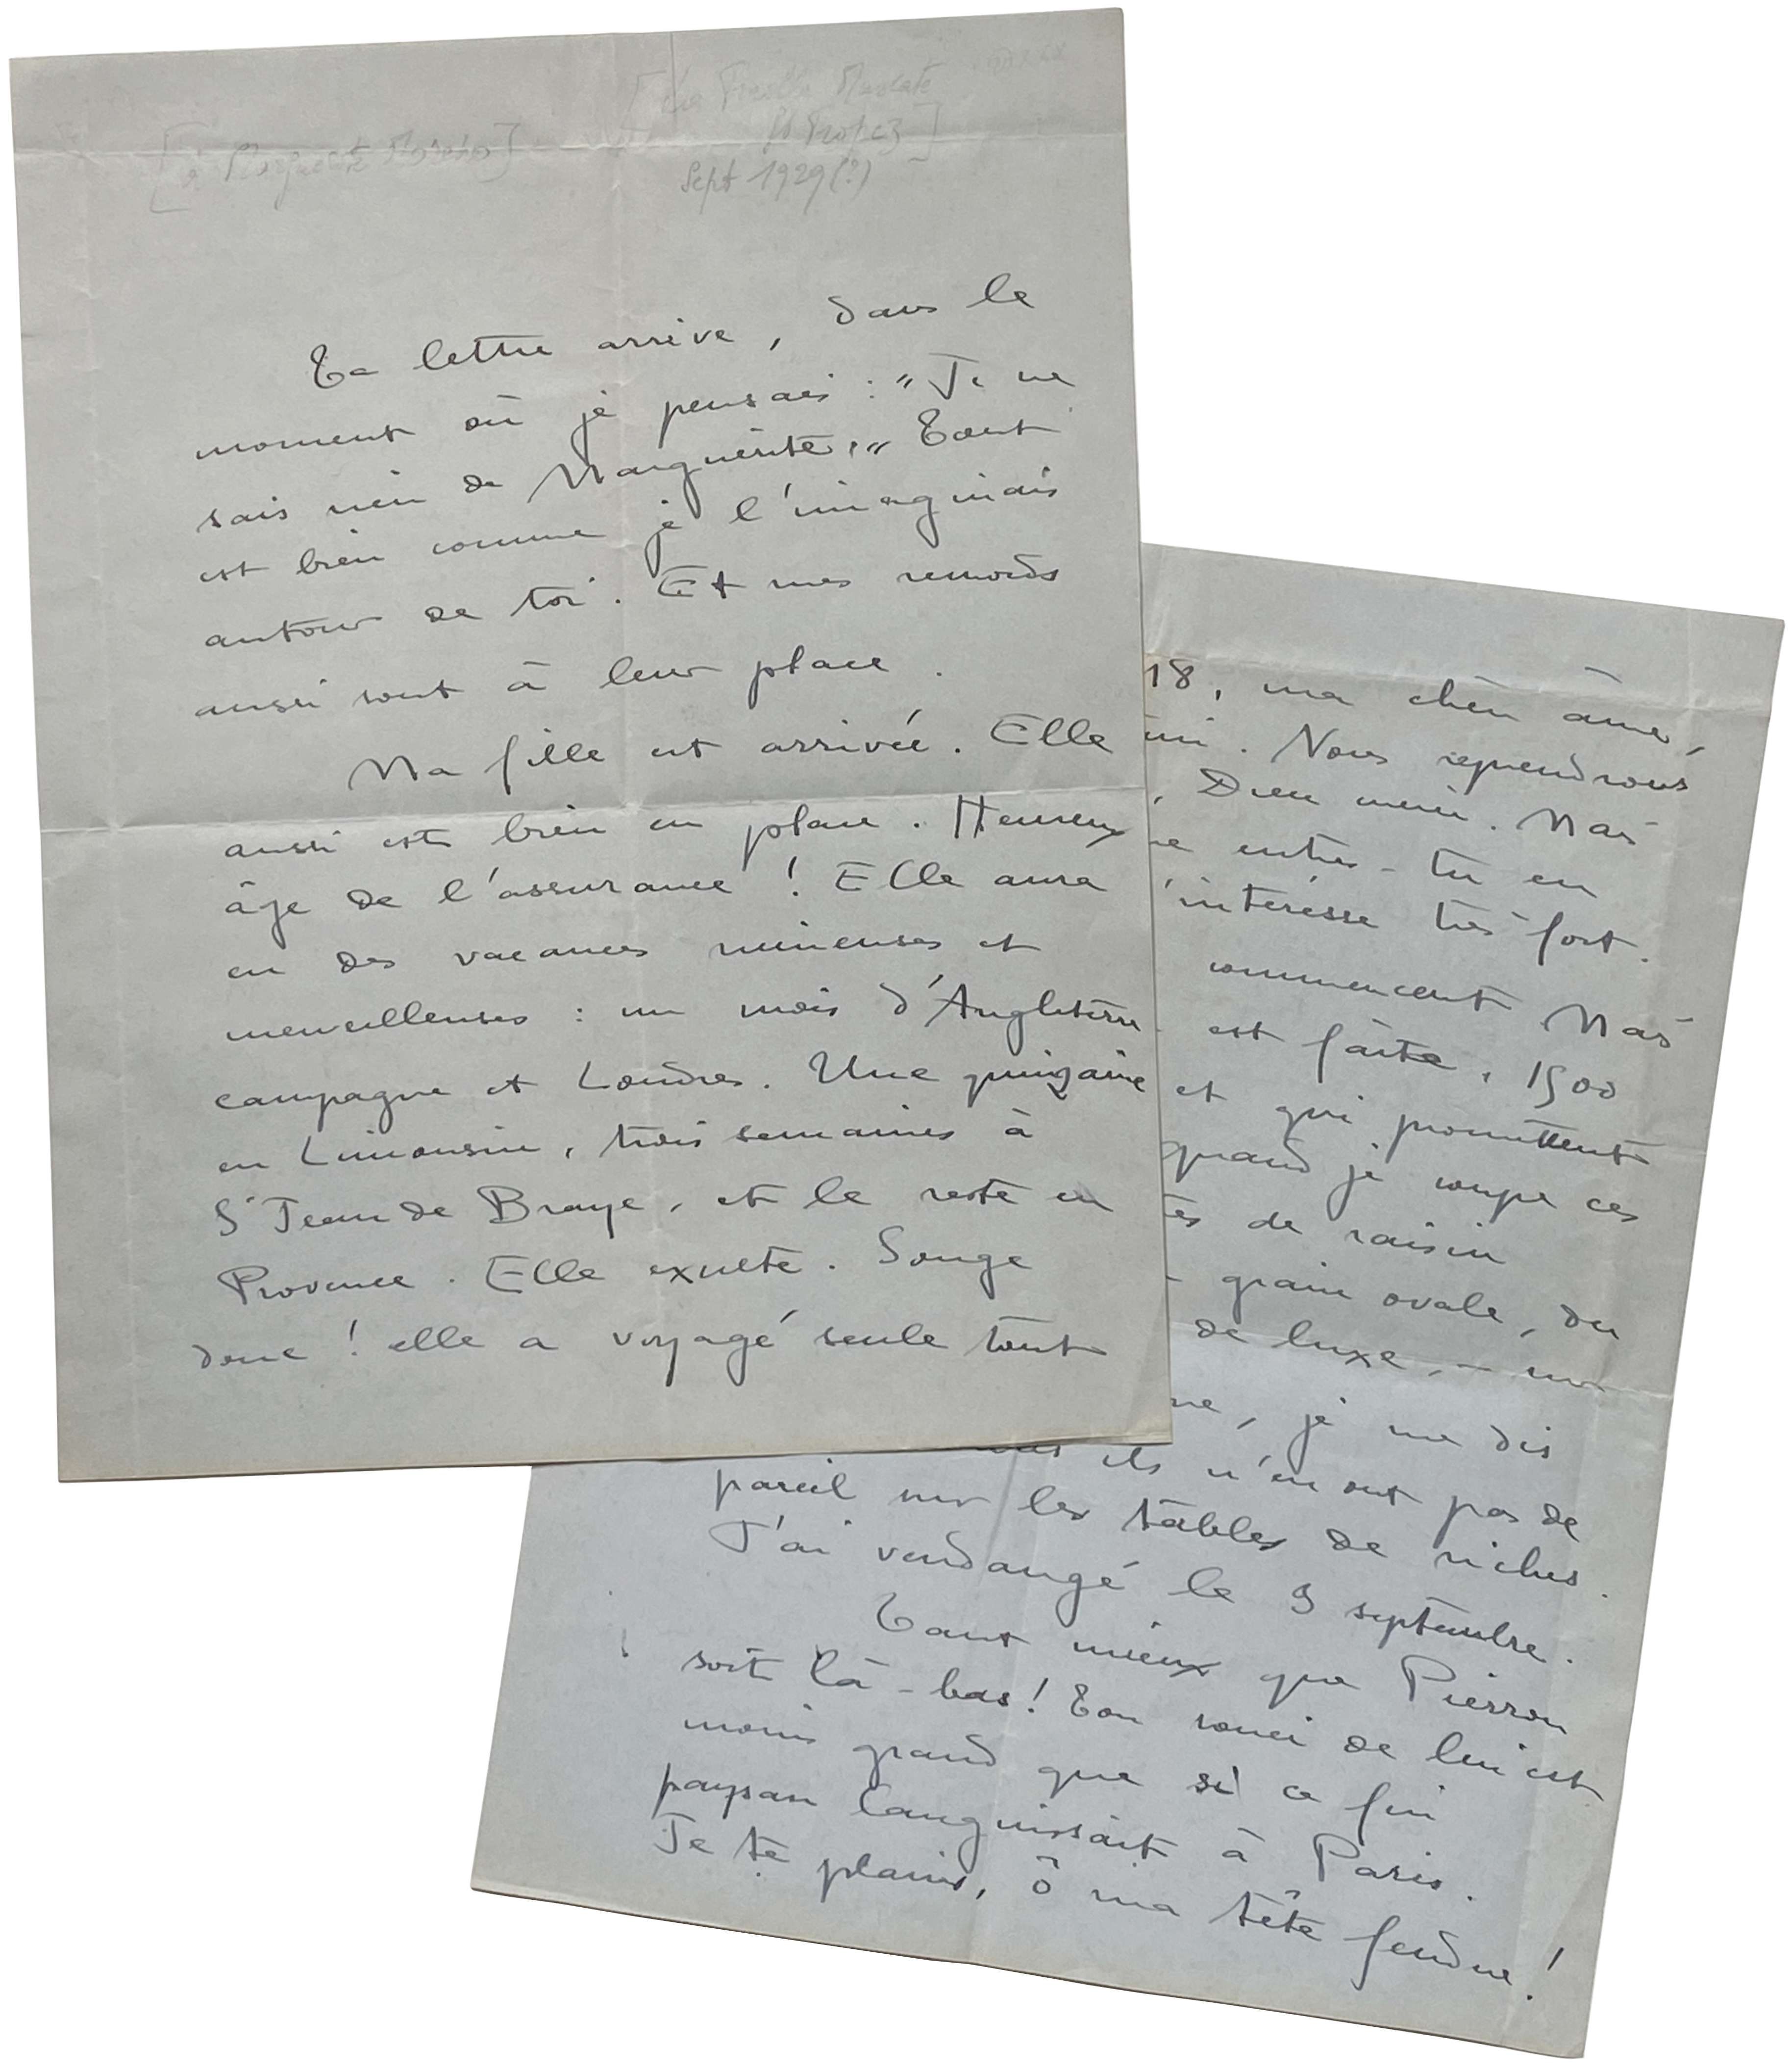 [à Marguerite Moreno]
[La Treille Muscate
St Tropez]
Sept 1929 (?)
Ta lettre arrive, dans le
moment où je pensais : "Je ne
sais rien de Marguerite." Tout
est bien comme je l'imaginais
autour de toi. Et mes remords
aussi sont à leur place.
Ma fille est arrivée. Elle
aussi est bien en place. Heureux
âge de l'assurance ! Elle aura
eu des vacances ruineuses et
merveilleuses : un mois d'Angleterre
campagne et Londres. Une quinzaine
en Limousin, trois semaines à
St Jean de Braye, et le reste en
Provence. Elle exulte. Songe
donc ! elle a voyagé seule tout
18, ma chère âme,
Nous reprendrons
, Dieu merci. Mais
entres-tu en
'intéresse très fort.
commencent Mais
est faite, 1500
et qui promettent
quand je coupe ces
de raisin
grain ovale, du
de luxe, - sur
, je me dis
ils n'en ont pas de
pareil sur les tables de riches.
J'ai vendangé le 9 septembre.
Tant mieux que Pierre
soit là-bas ! Ton souci de lui est
moins grand que si ce fin
paysan languissait à Paris.
Je te plains, ô ma tête fendue !